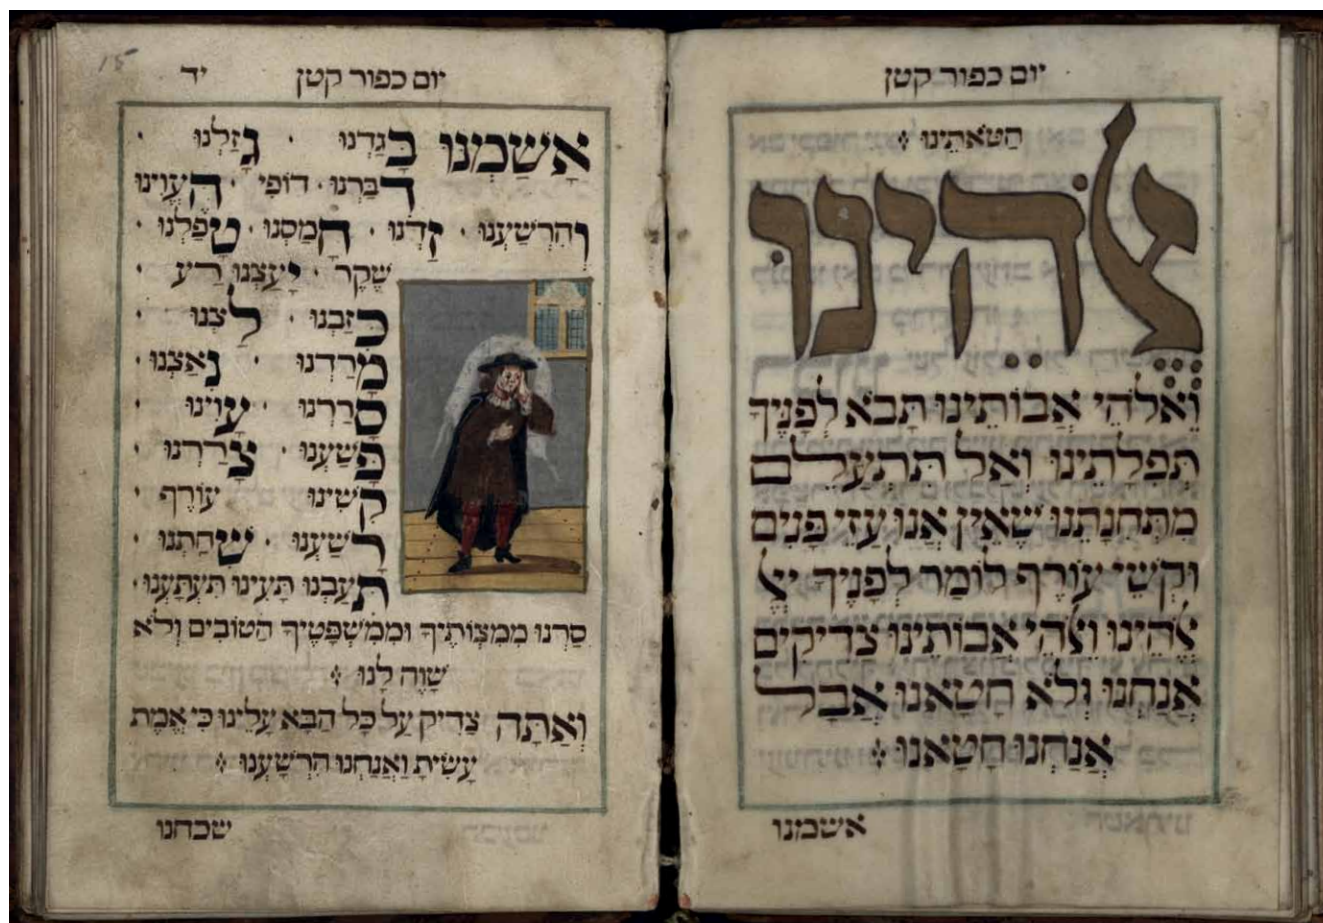 יום כפור קטן
חַטֹאתֵינוּ׃
אֱלֹהֵינוּ
וֵאלֹהֵי אֲבוֹתֵינוּ תָּבֹא לְפָנֶיךָ
תְּפִלָתֵינוּ וְאַל תִּתְעַלֵם
מִתְּחִנָתֵנוּ שֶׁאֵין אָנוּ עַזֵי פָּנִים
וּקְשֵׁי עוֹרֶף לוֹמַר לְפָנֶיךָ
אֱלֹהֵינוּ וֵאלֹהֵי אֲבוֹתֵינוּ צַדִיקִים
אֲנַחְנוּ וְלֹא חָטָאנוּ אֲבָל
אֲנַחְנוּ חָטָאנוּ׃
אשמנו
15
יום כפור קטן יד
אָשַׁמְנוּ בָּגַדְנוּ · גָזַלְנוּ ·
דִבַּרְנוּ דוֹפִי · הֶעֱוִינוּ
וְהִרְשַׁעְנוּ · זַדְנוּ · חָמַסְנוּ · טָפַלְנוּ ·
שֶׁקֶר · יָעַצְנוּ רַע ·
כִּזַבְנוּ · לַצְנוּ ·
מָרַדְנוּ · נִאַצְנוּ ·
סָרַרְנוּ · עָוִינוּ ·
פָּשַׁעְנוּ · צָרַרְנוּ ·
קִשִׁינוּ עוֹרֶף ·
רָשַׁעְנוּ · שִׁחַתְנוּ ·
תִּעַבְנוּ תָּעִינוּ תִּעְתָּעְנוּ ·
סַרְנוּ מִמִצְוֹתֶיךָ וּמִמִשְׁפָּטֶיךָ הַטוֹבִים וְלֹא
שָׁוָה לָנוּ׃
וְאַתָּה צַדִיק עַל כָּל הַבָּא עָלֵינוּ כִּי אֱמֶת
עָשִׂיתָ וַאֲנַחְנוּ הִרְשָׁעְנוּ׃
שכחנו